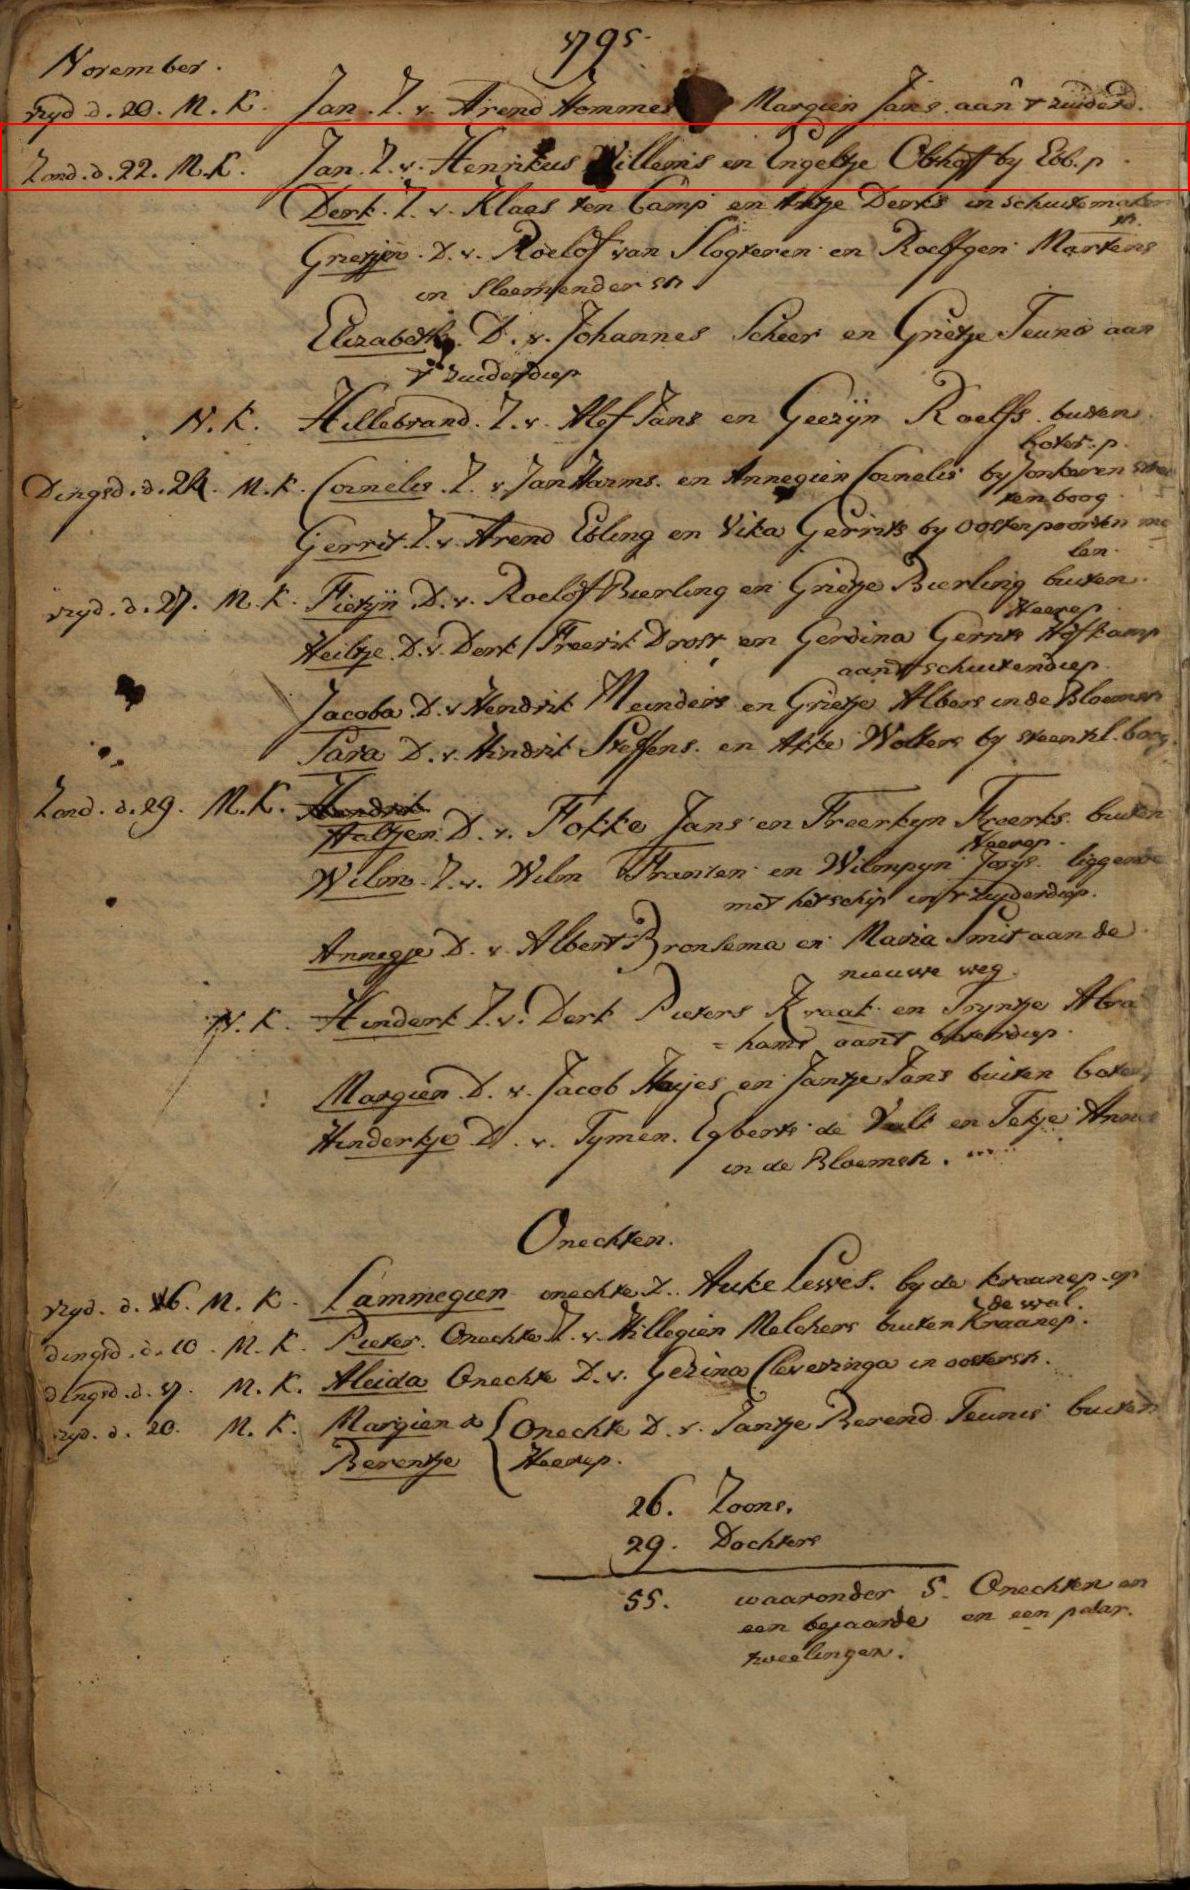 1795.
November.
vryd. d. 20. M. K. Jan. Z. v. Arend Hommes Margien Jans. aan 't zuiderd.
Zond. d. 22. M. K. Jan. Z. v. Henrikus Willems en Engeltje Obhoff by Ebb. p.
Derk. Z. v. Klaas ten Camp en Antje Derks in schuitemaker
st.
Grietjen. D. v. Roelof van Slogteren en Roelfgen Martens
in
Elizabeth. D. v. Johannes Scheer en Grietje Teunis aan
't Zuiderdiep
N. K. Hillebrand. Z. v. Alef Jans en Geezijn Roelfs. buiten
boter. p.
Dingsd. d. 24. M. K. Cornelis. Z. v. Jan Harms. en Annegien Cornelis by Jonkeren
ten boog
Gerrit. Z. v. Arend Ebling en Vika Gerrits by Oosterpoorten mo
len.
vryd. d. 27. M. K. Fietijn. D. v. Roelof Bierling en Grietje Bierling buiten.
Heerep.
Heiltje. D. v. Derk Freerik Drost en Gerdina Gerrits Hofkamp
aan't schuitendiep.
Jacoba. D. v. Hendrik Meinders en Grietje Albers in de Bloemstr
Sara D. v. Hindrik Steffens. en Afke Wolters by steentil. boog.
Zond. d. 29. M. K. Hendrik
Aaltjen. D. v. Fokke Jans en Freerkjen Freerks. buiten
Heerep.
Wilm. Z. v. Wilm Fransen en Wilmpijn Jorijs. liggende
met het schip in 't zuyderdiep.
Annegje D. v. Albert Bronsema en Maria Smit aan de
nieuwe weg.
N. K. Hinderk Z. v. Derk Pieters Kraak en Tryntje Abra
= hams aan't boterdiep.
Margien. D. v. Jacob Haijes en Jantje Jans buiten boter
Hindertje D. v. Tymen. Egberts de Valk en Tetje Annes
in de Bloemstr.
Onechten.
vryd. d. 6. M. K. Lammegien onechte D. Auke Lewes. by de kraanep. op
de wal.
dingsd. d. 10. M. K. Pieter. Onechte Z. v. Hillegien Melchers buiten Kraanep.
dingsd. d. 17. M. K. Aleida Onechte D. v. Gezina Cleveringa in oosterstr.
vryd. d. 20. M. K. Margien & { Onechte D. v. Jantje Berend Teunis buiten
Berentje Heerep.
26. Zoons.
29. Dochters
55. waaronder 5. Onechten en
een bejaarde en een paar.
tweelingen.